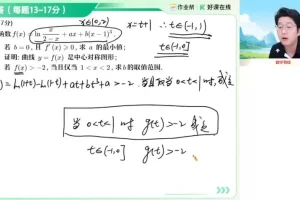 (每题13~17分)
作业帮 | 好课在线
x∈(0,2) x=t+1 ∴t∈(-1,1)
函数 f(x) = ln x/(2-x) + ax + b(x-1)³
t∈(-1,0]
若 b=0, 且 f′(x)≥0, 求 a 的最小值;
证明: 曲线 y=f(x) 是中心对称图形;
若 f(x)>-2, 当且仅当 1<x<2, 求 b 的取值范围.
)=ln(1+t)-ln(1-t)+at+bt³+a>-2. 当且仅当 0<t<1 时, 成立
当 0<t<1 时 g(t)>-2 成立
t∈(-1,0] g(t)>-2